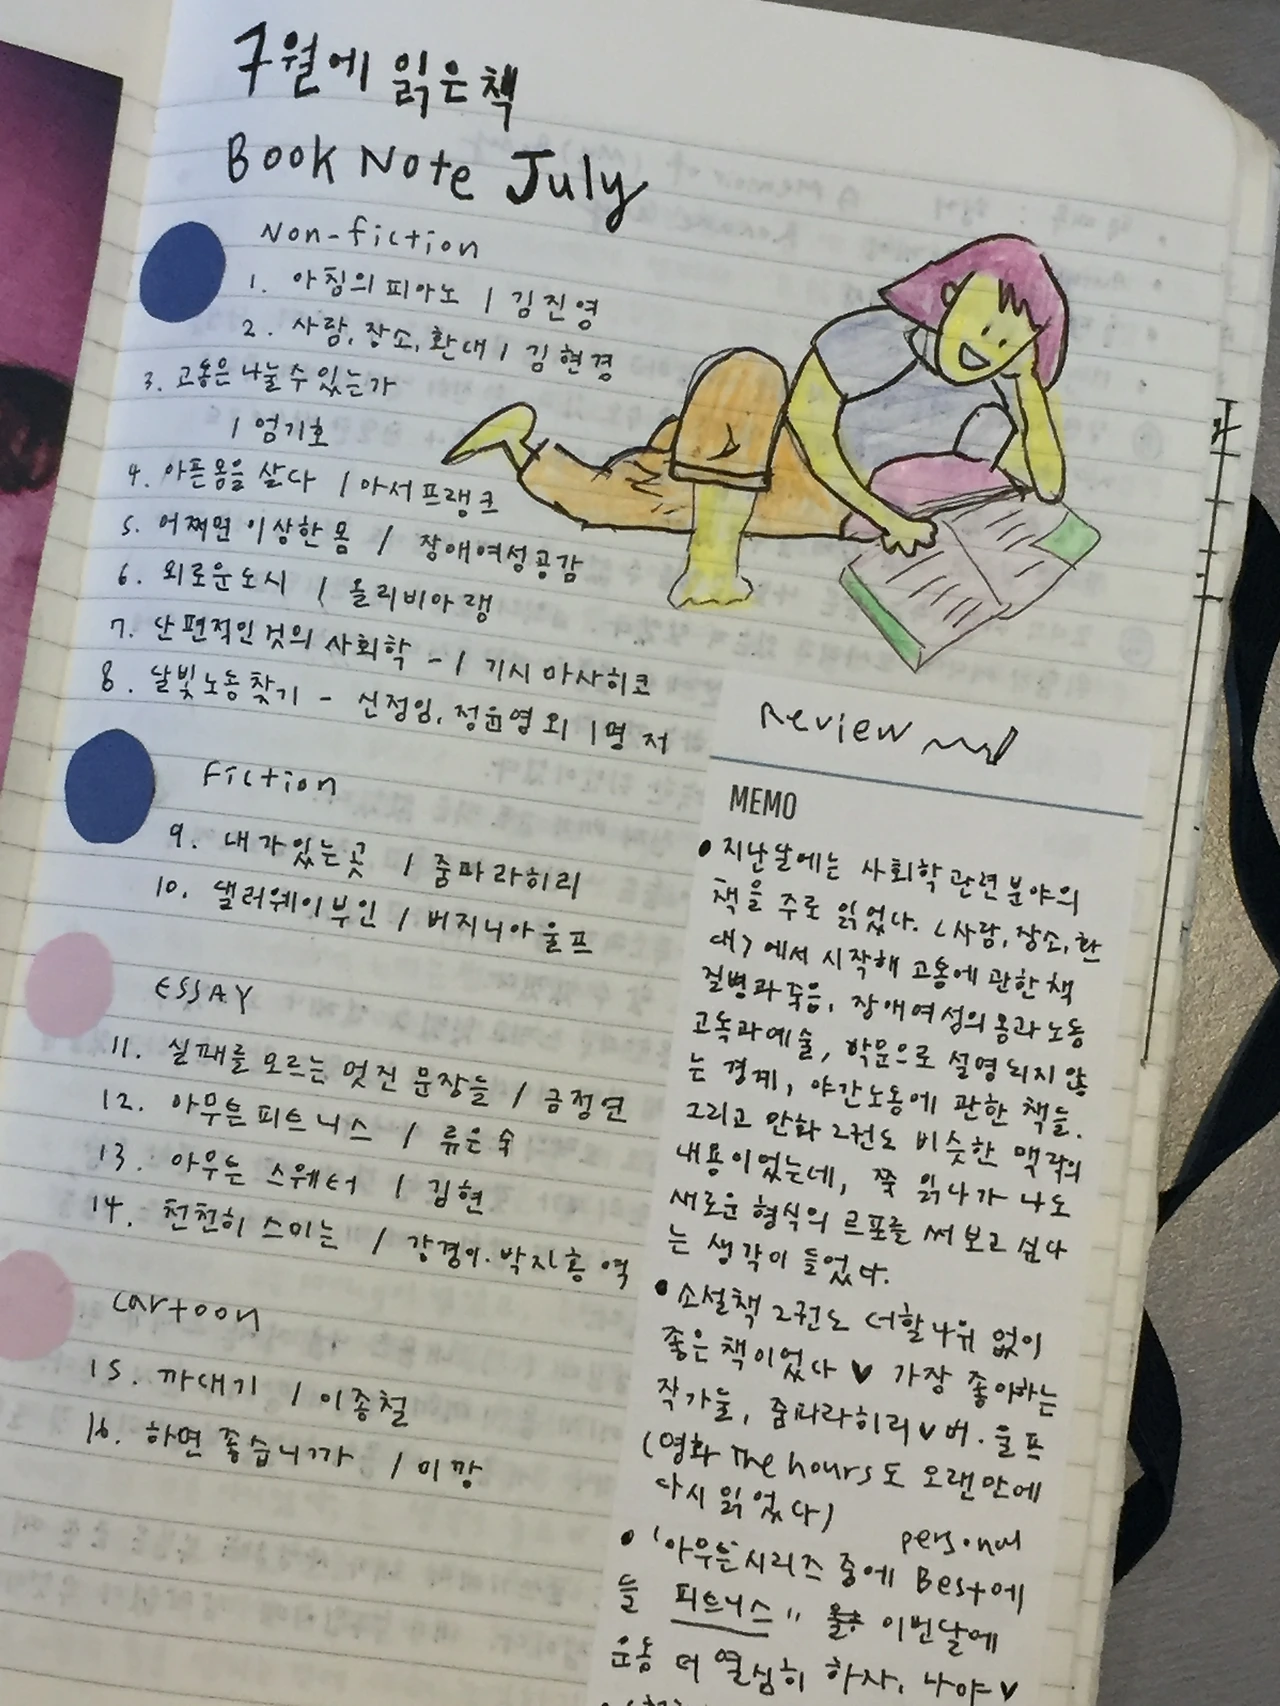 7월에 읽은책
Book Note July
Non-fiction
1. 아침의 피아노 / 김진영
2. 사람, 장소, 환대 / 김현경
3. 고통은 나눌 수 있는가
/ 엄기호
4. 아픈몸을 살다 / 아서프랭크
5. 어쩌면 이상한 몸 / 장애여성공감
6. 외로운도시 / 올리비아랭
7. 단편적인것의 사회학 - / 기시 마사히코
8. 달빛노동찾기 - 신정임, 정윤영 외 1명 저
Fiction
9. 내가있는곳 / 줌파라히리
10. 댈러웨이부인 / 버지니아울프
ESSAY
11. 실패를 모르는 멋진 문장들 / 금정연
12. 아무튼피트니스 / 류은숙
13. 아무튼 스웨터 / 김현
14. 천천히 스미는 / 강경이.박지홍 역
cartoon
15. 까대기 / 이종철
16. 하면 좋습니까 / 미깡
Review
MEMO
• 지난달에는 사회학관련분야의
책을 주로 읽었다. <사람, 장소, 환
대>에서 시작해 고통에 관한 책
질병과죽음, 장애여성의 몸과노동
고독과예술, 학문으로 설명되지 않
는 경계, 야간노동에 관한 책들.
그리고 만화 2권도 비슷한 맥락의
내용이었는데, 쭉 읽다가 나도
새로운 형식의 르포를 써 보고 싶다
는 생각이 들었다.
• 소설책 2권도 더할나위 없이
좋은책이었다 ♥ 가장 좋아하는
작가들, 줌파라히리♥버.울프
(영화 The hours도 오랜만에
다시 읽었다)
personal
• '아무튼'시리즈 중에 Best에
들 피트니스" 이번달에
운동 더 열심히 하자, 나야♥